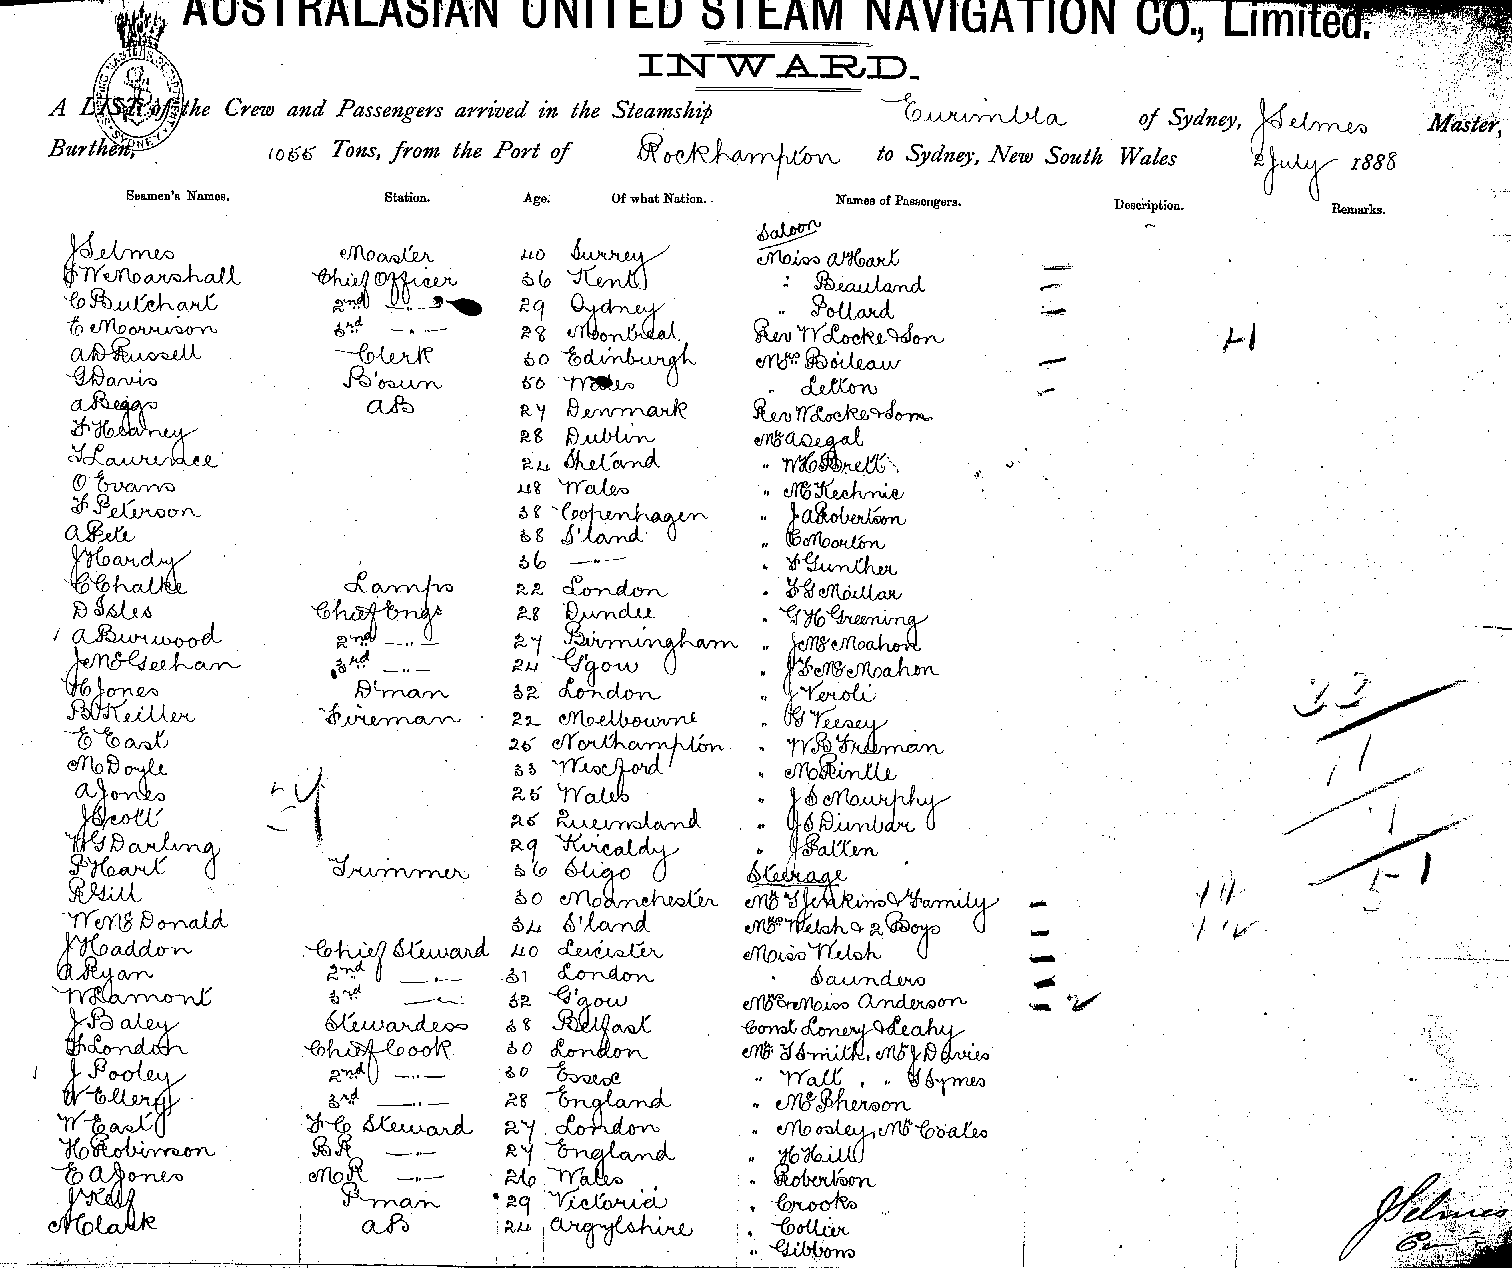 AUSTRALASIAN UNITED STEAM NAVIGATION CO., Limited.
INWARD.
A LIST of the Crew and Passengers arrived in the Steamship Eurimbla of Sydney, J Selmes Master,
Burthen, 1055 Tons, from the Port of Rockhampton to Sydney, New South Wales 2 July 1888
Seamen's Names. Station. Age. Of what Nation. Names of Passengers. Description. Remarks.
Saloon
J Selmes Master 40 Surrey Miss A Hart
F W Marshall Chief Officer 36 Kent " Beauland
C Butchart 2nd —"— 29 Sydney " Pollard
E Morrison 3rd —"— 28 Montreal Rev W Locke & Son
A D Russell Clerk 30 Edinburgh Mrs Boileau
G Davis B'osun 50 Wales " Letton
A Beggs AB 27 Denmark Rev W Locke & Son
F Heaney 28 Dublin Mr A Segal
T Laurence 24 Shetand " W H Brett
O Evans 48 Wales " McKechnie
F Peterson 38 Copenhagen " J A Robertson
A Pete 38 S'land " C Morton
J Hardy 36 —"— " F Gunther
C Chalke Lamps 22 London " F G Millar
D Isles Chief Engr 28 Dundee " G H Greening
A Burwood 2nd —"— 27 Birmingham " J McMahon
J McGeehan 3rd —"— 24 G'gow " J F McMahon
H Jones D'man 32 London " J Veroli
B Keiller Fireman 22 Melbourne " G Veesey
E East 25 Northampton " W B Freeman
M Doyle 33 Wexford " M Rintle
A Jones 25 Wales " J S Murphy
J Scott 25 Queensland " J S Dunbar
W G Darling 29 Kircaldy " J Patten
P Hart Trimmer 36 Sligo Steerage
R Gill 30 Manchester Mr T Jenkins & Family
W McDonald 34 S'land Mrs Welsh & 2 Boys
J Haddon Chief Steward 40 Leicister Miss Welsh
A Ryan 2nd —"— 31 London " Saunders
W Lamont 3rd —"— 32 G'gow Mr & Miss Anderson 2
J Baley Stewardess 38 Belfast Const Lonery & Leahy
F London Chief Cook 30 London Mr T Smith, Mr J Davies
J Pooley 2nd —"— 30 Essex " Wall, " T Symes
W Ellery 3rd —"— 28 England " McPherson
W East F C Steward 27 London " Mosley, Mr Coates
H Robinson BR —"— 27 England " H Hill
E A Jones MR —"— 26 Wales " Robertson
J Kelf P'man 29 Victoria " Crooks
M Clark AB 24 Argylshire " Collier
" Gibbons
33
11
51
J Selmes